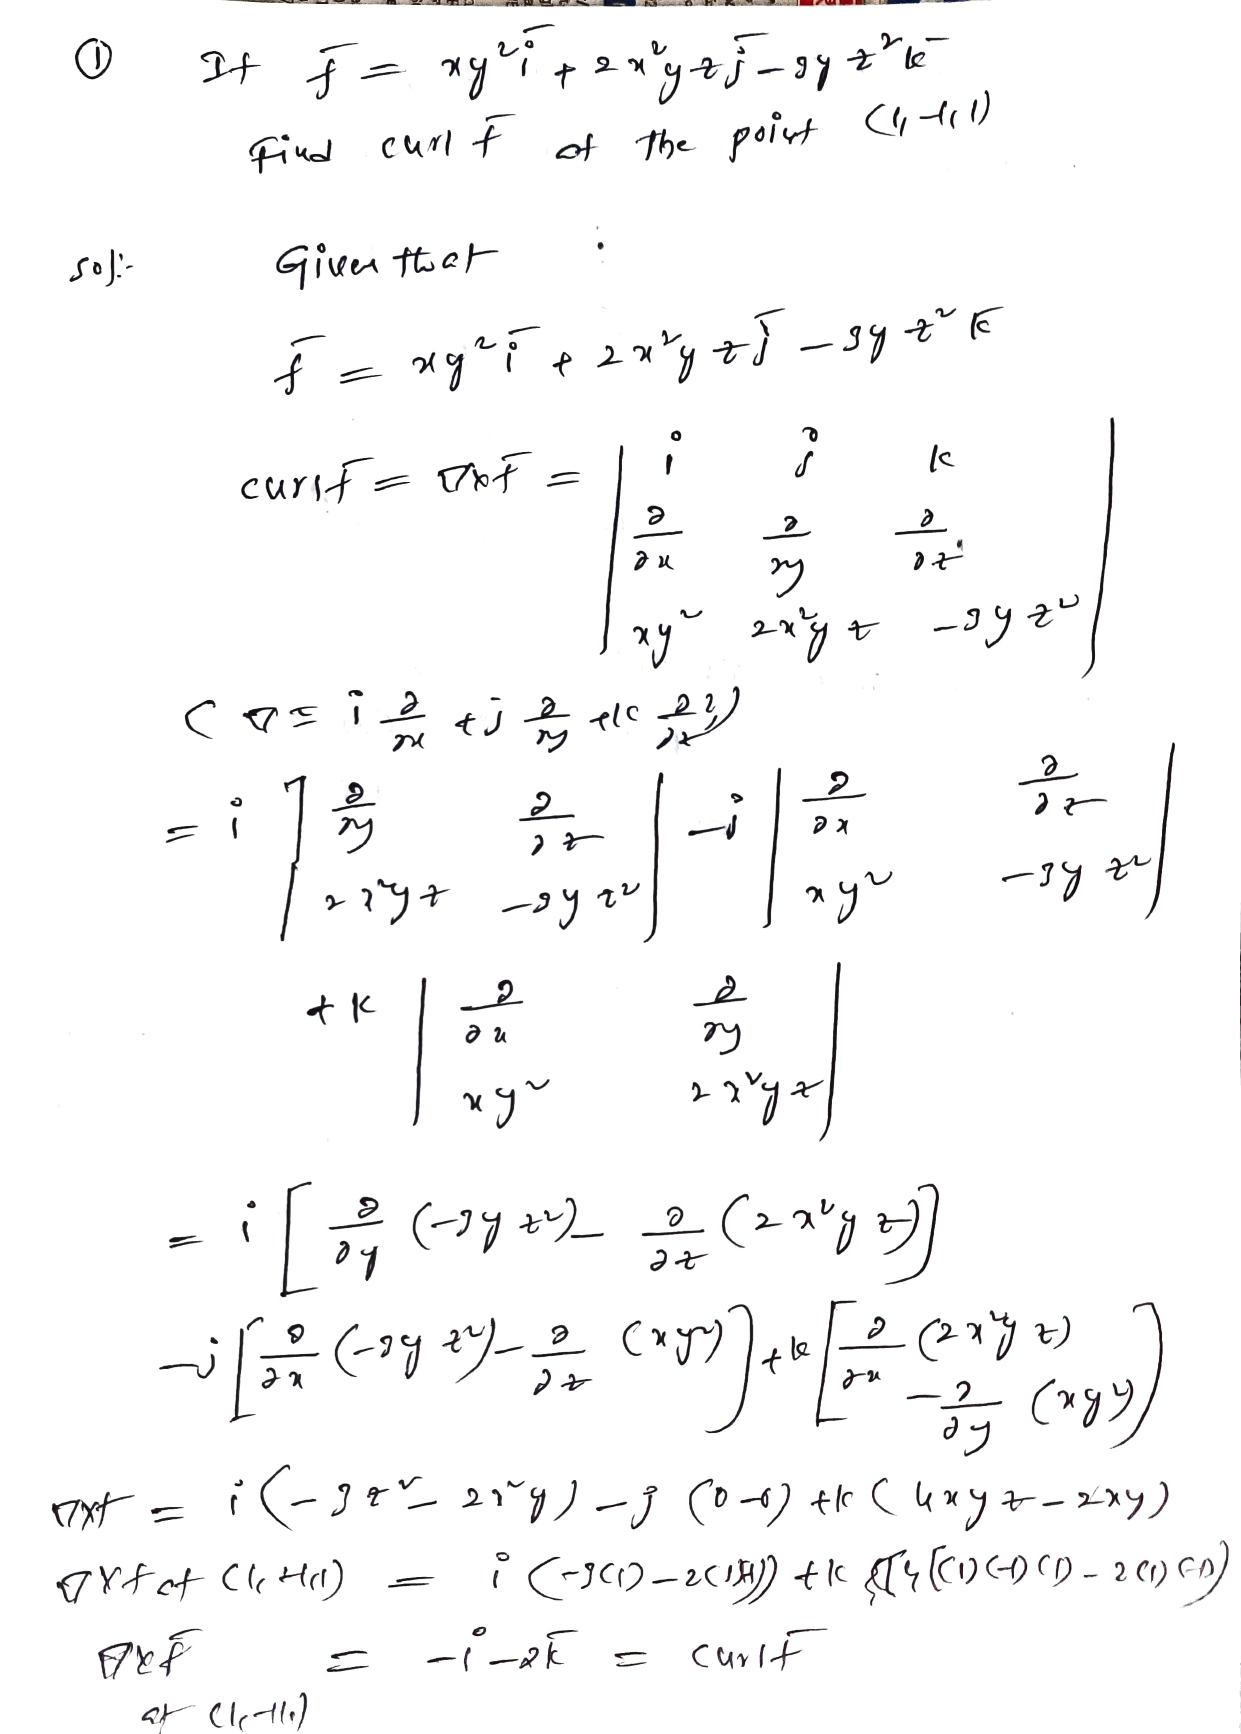 ① If f̅ = xy² i̅ + 2x²yz j̅ - 3yz² k̅
Find curl f̅ at the point (1, -1, 1)
Sol:- Given that
f̅ = xy² i̅ + 2x²yz j̅ - 3yz² k̅
curl f̅ = ∇×f̅ = | i j k |
| ∂/∂x ∂/∂y ∂/∂z |
| xy² 2x²yz -3yz² |
(∇ = i ∂/∂x + j ∂/∂y + k ∂/∂z)
= i | ∂/∂y ∂/∂z | - j | ∂/∂x ∂/∂z |
| 2x²yz -3yz² | | xy² -3yz² |
+ k | ∂/∂x ∂/∂y |
| xy² 2x²yz |
= i [ ∂/∂y (-3yz²) - ∂/∂z (2x²yz) ]
- j [ ∂/∂x (-3yz²) - ∂/∂z (xy²) ] + k [ ∂/∂x (2x²yz)
- ∂/∂y (xy²) ]
∇×f = i (-3z² - 2x²y) - j (0-0) + k (4xyz - 2xy)
∇×f at (1, -1, 1) = i (-3(1) - 2(1)(-1)) + k [4(1)(-1)(1) - 2(1)(-1)]
∇×f̅ = -i - 2k̅ = curl f̅
at (1, -1, 1)